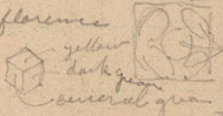 florence
yellow
dark green
emeral green